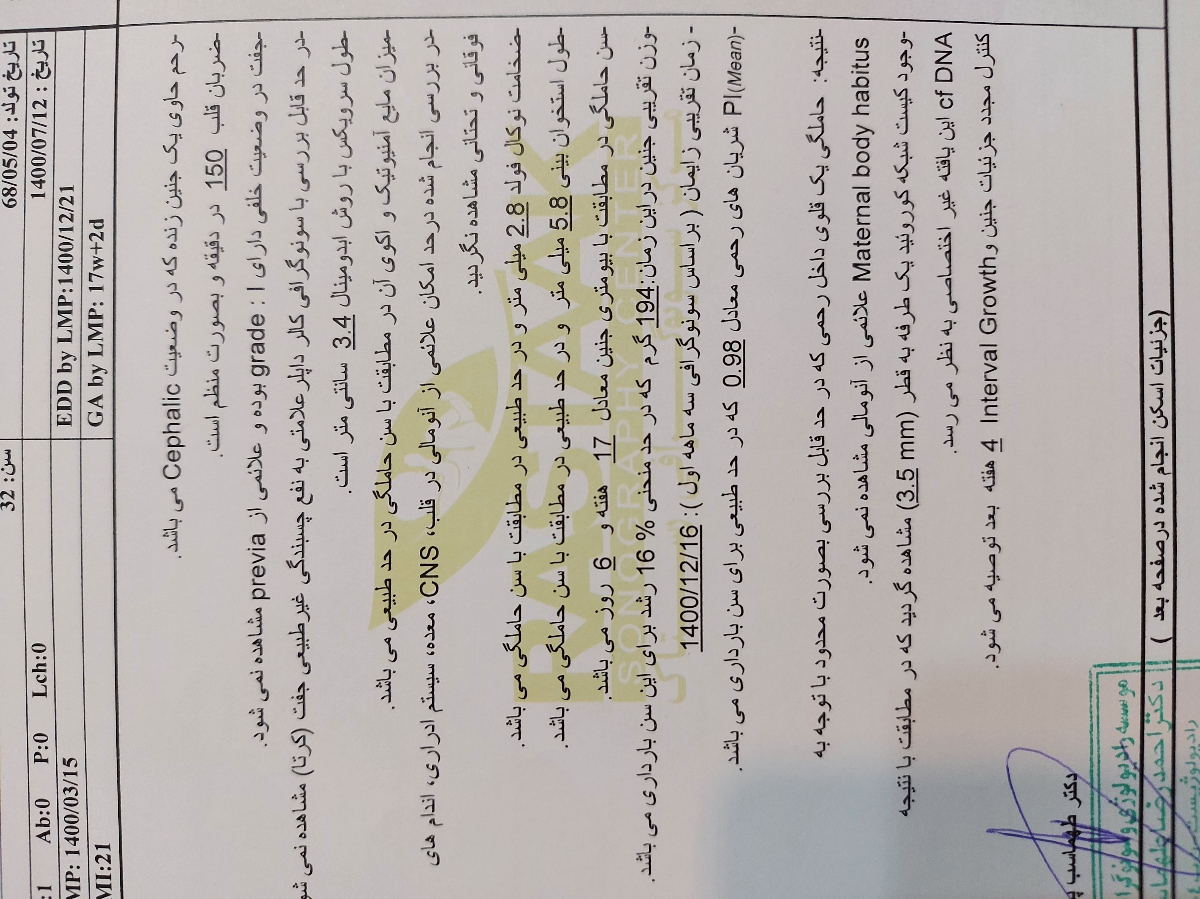 سن: 32
تاریخ تولد: 68/05/04
:1 Ab:0 P:0 Lch:0
تاریخ : 1400/07/12
MP: 1400/03/15
EDD by LMP:1400/12/21
MI:21
GA by LMP: 17w+2d
-رحم حاوی یک جنین زنده که در وضعیت Cephalic می باشد.
-ضربان قلب 150 در دقیقه و بصورت منظم است.
-جفت در وضعیت خلفی دارای grade : I بوده و علائمی از previa مشاهده نمی شود.
-در حد قابل بررسی با سونوگرافی کالر داپلر علامتی به نفع چسبندگی غیرطبیعی جفت (کرتا) مشاهده نمی شو
-طول سرویکس با روش ابدومینال 3.4 سانتی متر است.
-میزان مایع آمنیوتیک و اکوی آن در مطابقت با سن حاملگی در حد طبیعی می باشد.
-در بررسی انجام شده درحد امکان علائمی از آنومالی در قلب، CNS، معده، سیستم ادراری، اندام های
فوقانی و تحتانی مشاهده نگردید.
-ضخامت نوکال فولد 2.8 میلی متر و در حد طبیعی در مطابقت با سن حاملگی می باشد.
-طول استخوان بینی 5.8 میلی متر و در حد طبیعی در مطابقت با سن حاملگی می باشد.
-سن حاملگی در مطابقت با بیومتری جنین معادل 17 هفته و 6 روز می باشد.
-وزن تقریبی جنین دراین زمان:194 گرم که در حد منحنی % 16 رشد برای این سن بارداری می باشد.
- زمان تقریبی زایمان ( براساس سونوگرافی سه ماهه اول ): 1400/12/16
-PI(Mean) شریان های رحمی معادل 0.98 که در حد طبیعی برای سن بارداری می باشد.
نتیجه: حاملگی یک قلوی داخل رحمی که در حد قابل بررسی بصورت محدود با توجه به
Maternal body habitus علائمی از آنومالی مشاهده نمی شود.
-وجود کیست شبکه کوروئید یک طرفه به قطر (3.5 mm) مشاهده گردید که در مطابقت با نتیجه
cf DNA این یافته غیر اختصاصی به نظر می رسد.
کنترل مجدد جزئیات جنین و Interval Growth 4 هفته بعد توصیه می شود.
دکتر طهماسب پ
موسسه رادیولوژی و سونوگرا
دکتر احمدرضا طهما
رادیولوژیست
(جزئیات اسکن انجام شده درصفحه بعد )
RASTAK
SONOGRAPHY CENTER